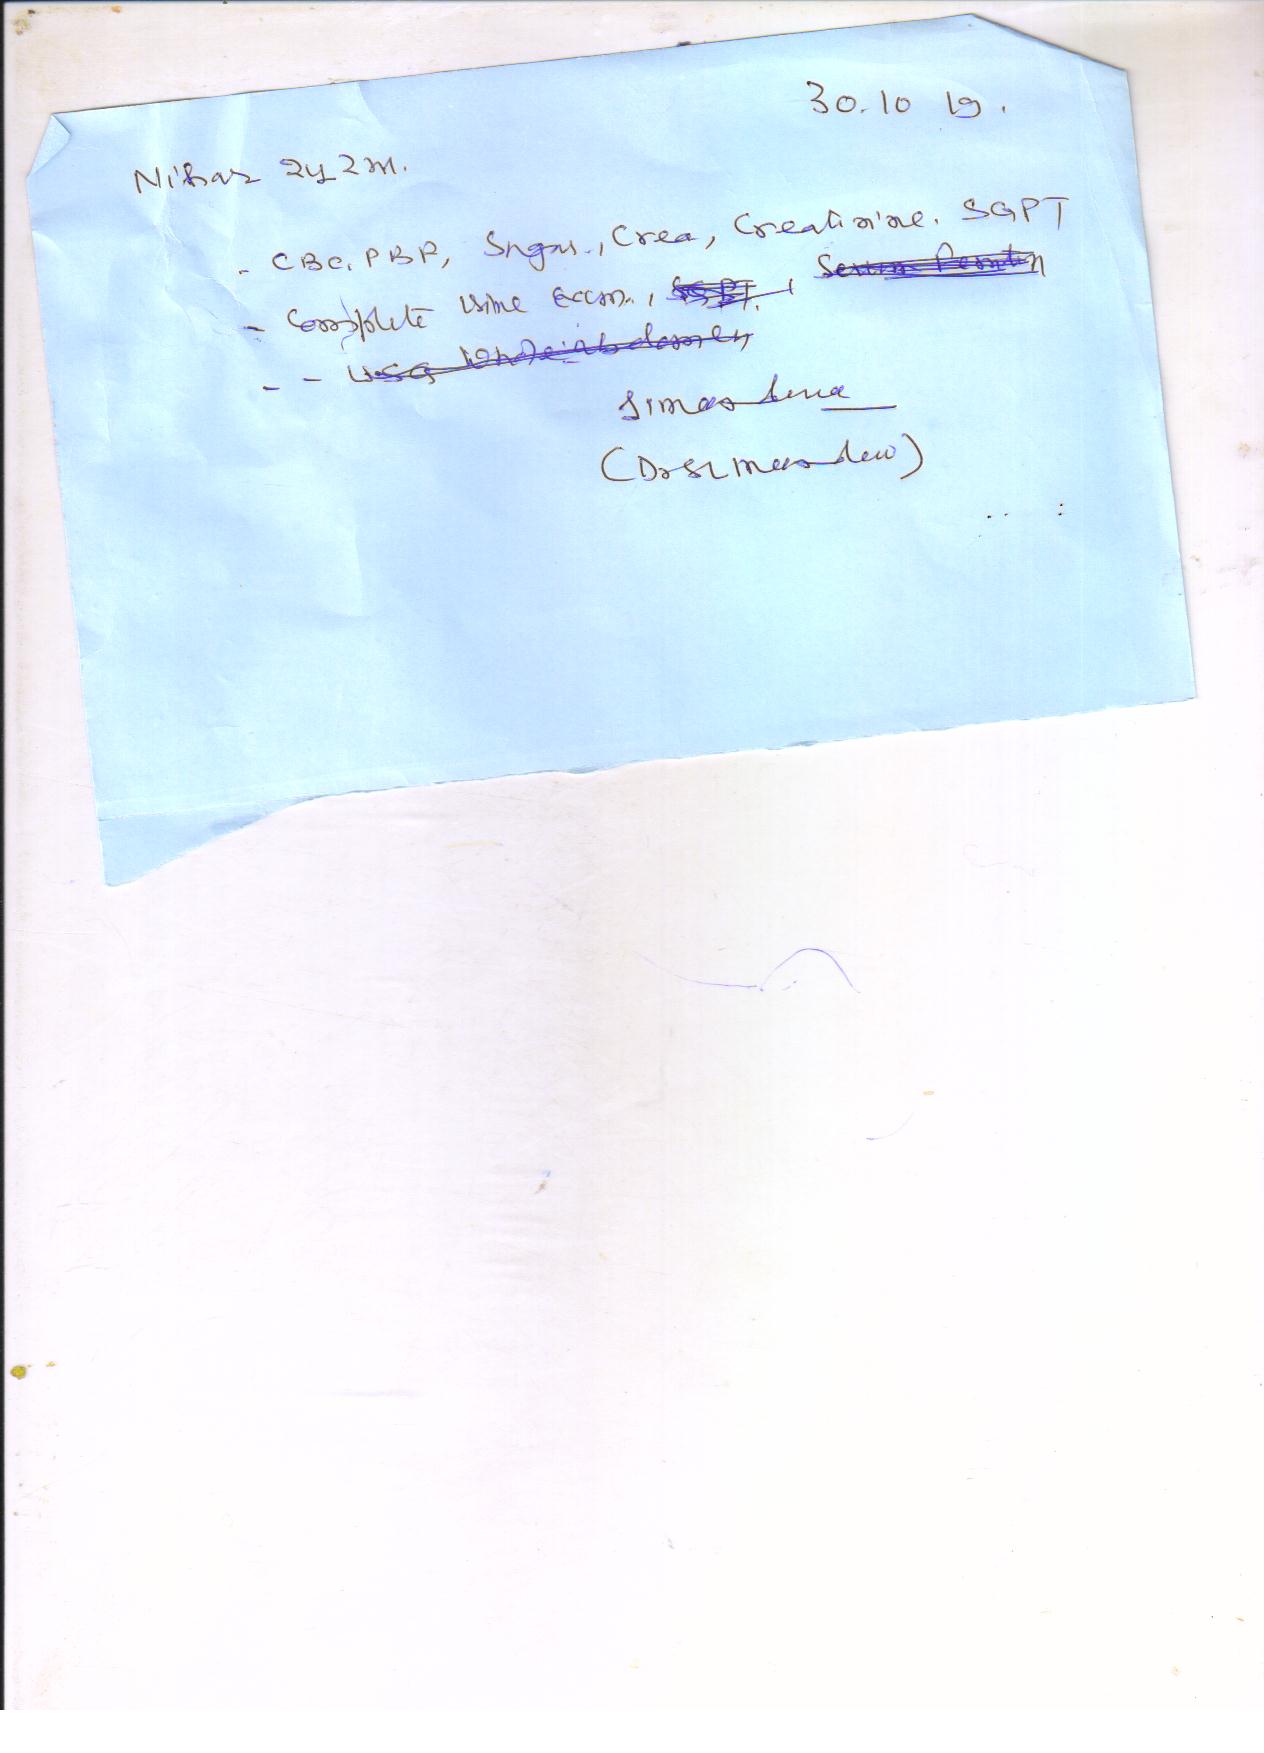 30.10 19.
Nihar 2y 2m.
- CBC, PBP, Sugar., Urea, Creatinine. SGPT
- Complete Urine Exam., SGPT, Serum Ferritin
- - USG whole abdomen
(Dr S